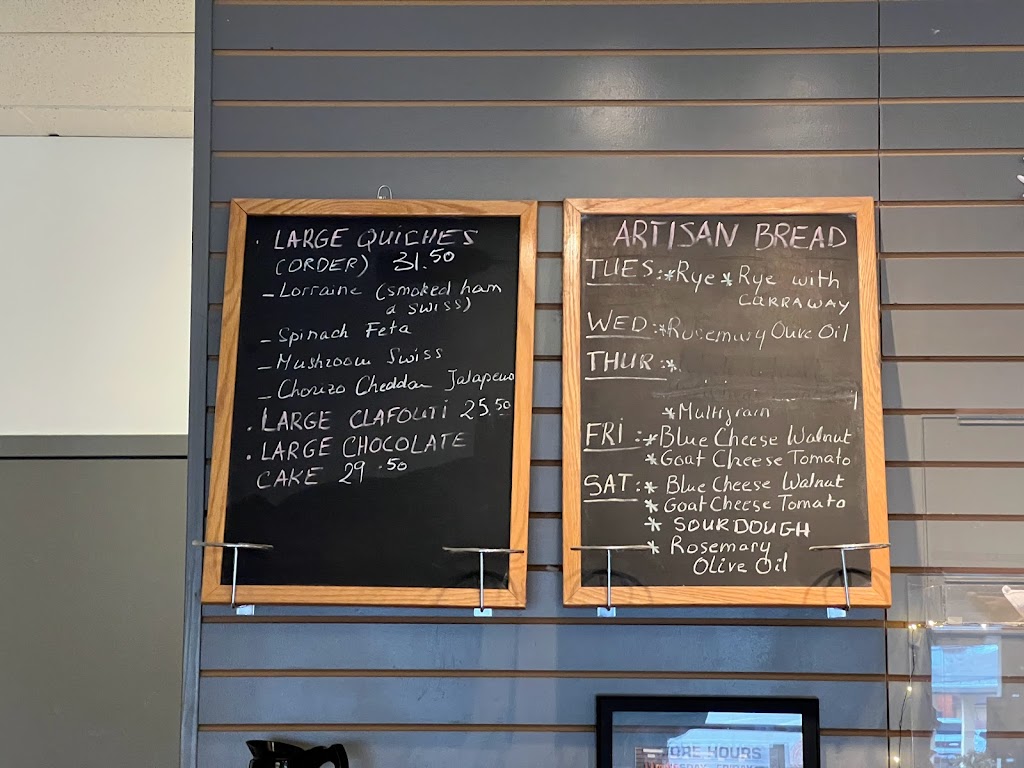 . LARGE QUICHES
(ORDER) 31.50
- Lorraine (smoked ham
a swiss)
- Spinach Feta
- Mushroom Swiss
- Chorizo Cheddar Jalapeno
. LARGE CLAFOUTI 25.50
. LARGE CHOCOLATE
CAKE 29.50
ARTISAN BREAD
TUES:*Rye *Rye with
CARRAWAY
WED:*Rosemary Olive Oil
THUR:*
*Multigrain
FRI:*Blue Cheese Walnut
*Goat Cheese Tomato
SAT:* Blue Cheese Walnut
* Goat Cheese Tomato
* SOURDOUGH
* Rosemary
Olive Oil
HOURS